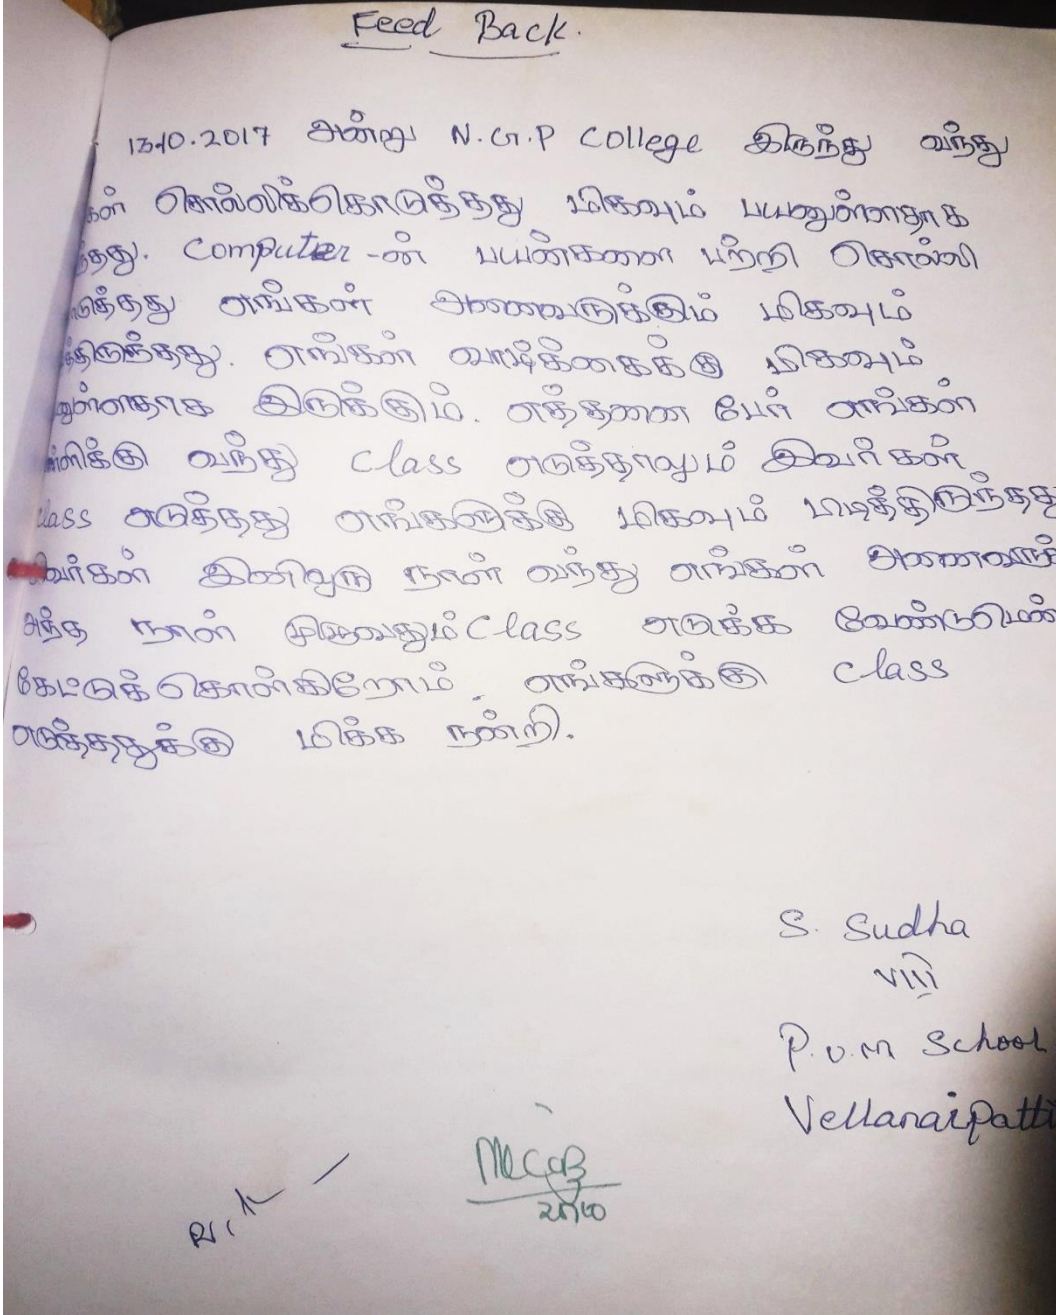 Feed Back.
13.10.2017 அன்று N.G.P College இருந்து வந்து
கள் சொல்லிக்கொடுத்தது மிகவும் பயனுள்ளதாக
ந்தது. Computer -ன் பயன்களை பற்றி சொல்லி
டுத்தது எங்கள் அணைவருக்கும் மிகவும்
த்திருந்தது. எங்கள் வாழ்க்கைக்கு மிகவும்
னுள்ளதாக இருக்கும். எத்தனை பேர் எங்கள்
ளிக்கு வந்து class எடுத்தாலும் இவர்கள்
class எடுத்தது எங்களுக்கு மிகவும் பிடித்திருந்தது
இவர்கள் இனிஒரு நாள் வந்து எங்கள்
அந்த நாள் முழுவதும் class எடுக்க வேண்டுமென்
கேட்டுக் கொள்கிறோம். எங்களுக்கு class
எடுத்ததுக்கு மிக்க நன்றி.
S. Sudha
VIII
P.U.M School
Vellanaipatti